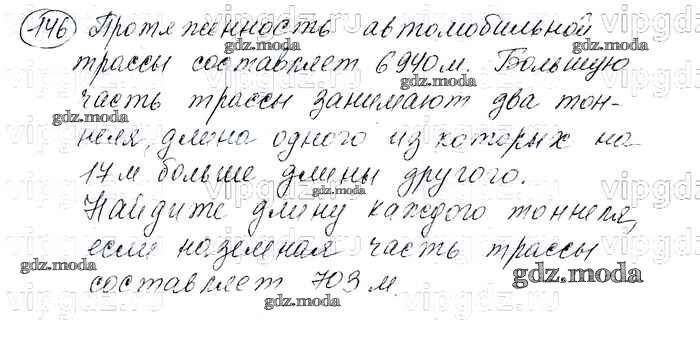 146 Протяженность автомобильной
трассы составляет 6940м. Большую
часть трассы занимают два тон-
неля, длина одного из которых на
17м больше длины другого.
Найдите длину каждого тоннеля,
если наземная часть трассы
составляет 703 м.
gdz.moda
gdz.moda
gdz.moda
gdz.moda
gdz.moda
gdz.moda
gdz.moda
gdz.moda
gdz.moda
gdz.moda
gdz.moda
vipgdz.ru